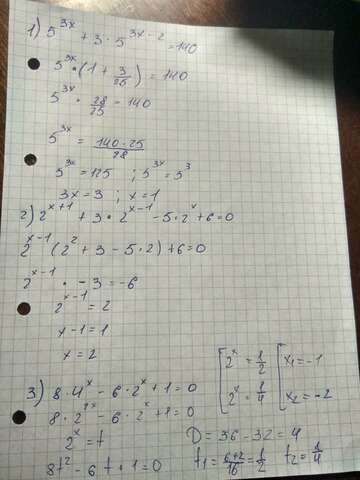 1) 5^{3x} + 3 · 5^{3x-2} = 140
5^{3x} · (1 + 3/25) = 140
5^{3x} · 28/25 - 140
5^{3x} = 140 · 25/28
5^{3x} = 125 ; 5^{3x} = 5^3
3x = 3 ; x = 1
2) 2^{x+1} + 3 · 2^{x-1} - 5 · 2^x + 6 = 0
2^{x-1} (2^2 + 3 - 5 · 2) + 6 = 0
2^{x-1} · -3 = -6
2^{x-1} = 2
x - 1 = 1
x = 2
3) 8 · 4^x - 6 · 2^x + 1 = 0
8 · 2^{2x} - 6 · 2^x + 1 = 0
2^x = t
8t^2 - 6t + 1 = 0
D = 36 - 32 = 4
t_1 = 6+2/16 = 1/2 t_2 = 1/4
[ 2^x = 1/2 [ x_1 = -1
2^x = 1/4 x_2 = -2